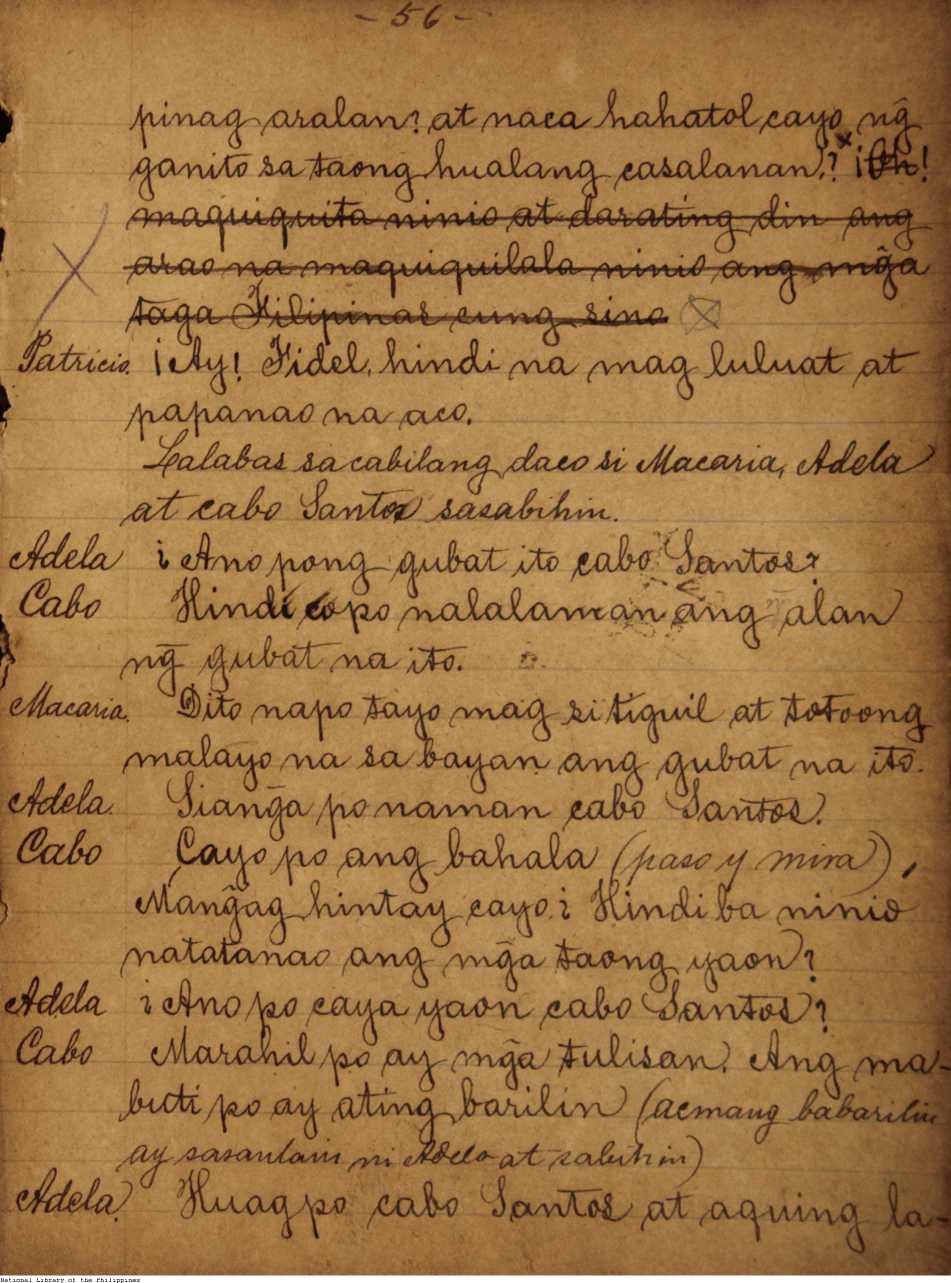 - 56 -
pinag aralan? at naca hahatol cayo ng̃
ganito sa taong hualang casalanan? ¡Oh!
maquiquita ninio at darating din ang
arao na maquiquilala ninio ang mg̃a
taga Filipinas cung sino
Patricio. ¡Ay! Fidel, hindi na mag luluat at
papanao na aco.
Lalabas sa cabilang daco si Macaria, Adela
at cabo Santos sasabihin.
Adela ¿Ano pong gubat ito cabo Santos?
Cabo Hindi co po nalalaman ang alan
ng̃ gubat na ito.
Macaria. Dito napo tayo mag sitiguil at totoong
malayo na sa bayan ang gubat na ito.
Adela. Siang̃a po naman cabo Santos.
Cabo Cayo po ang bahala (paso y mira),
Mang̃ag hintay cayo. ¿Hindi ba ninio
natatanao ang mg̃a taong yaon?
Adela ¿Ano po caya yaon cabo Santos?
Cabo Marahil po ay mg̃a tulisan. Ang ma-
buti po ay ating barilin (acmang babarilin
ay sasanlain ni Adela at sabihin)
Adela. Huag po cabo Santos at aquing la-
National Library of the Philippines